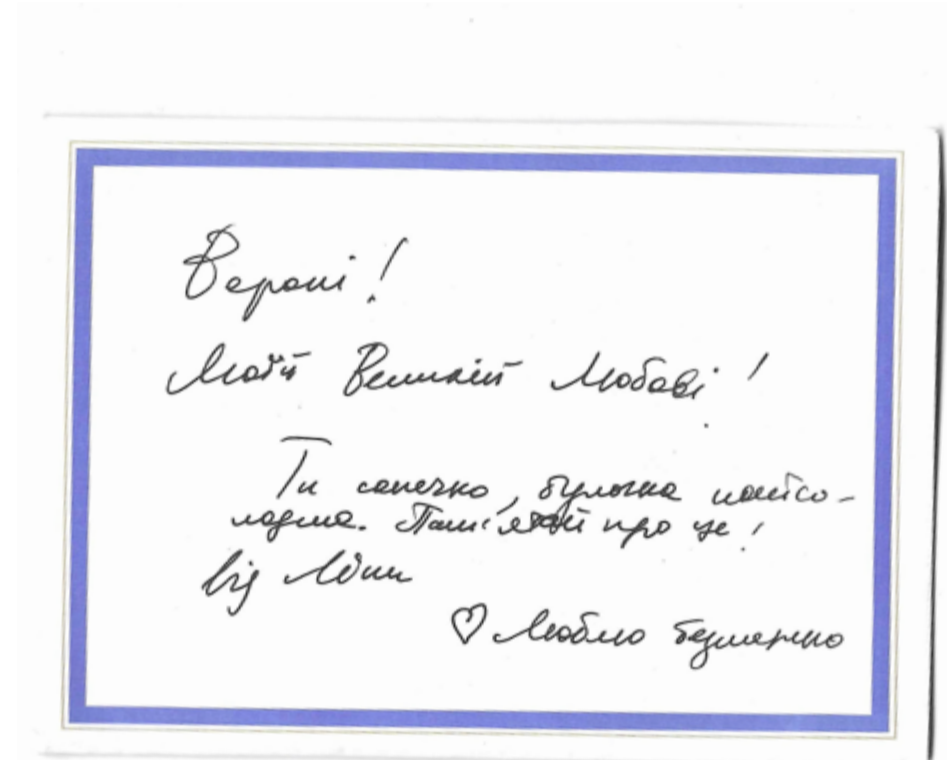 Вероні!
Моїй Великій Любові!
Ти сонечко, булочка найсо-
лодша. Пам'ятай про це!
від Ліни
♡ Люблю безмежно